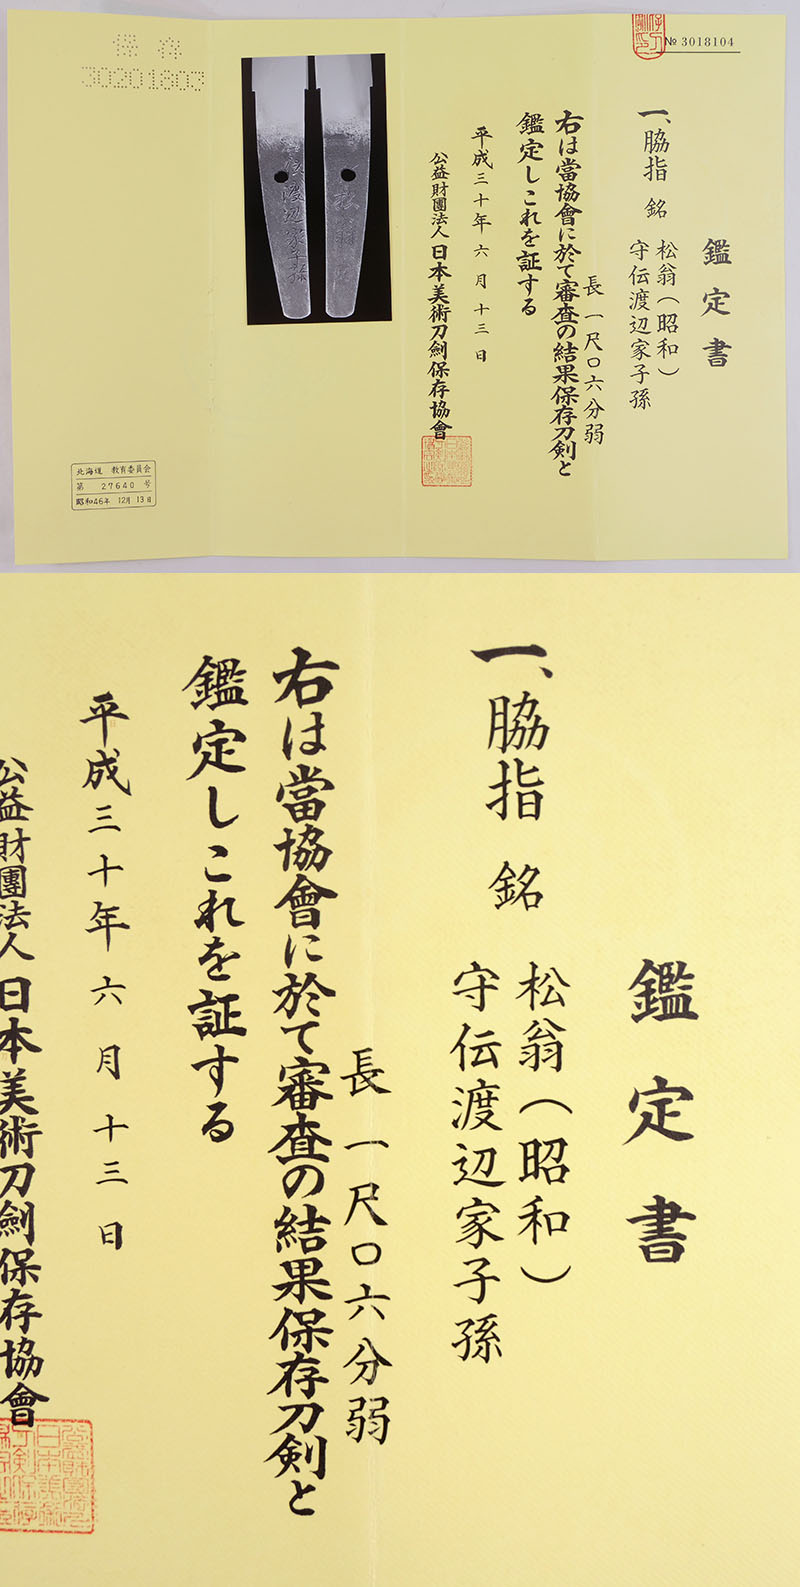 No 3018104
鑑定書
一、脇指 銘 松翁（昭和）
守伝渡辺家子孫
長 一尺〇六分弱
右は當協會に於て審査の結果保存刀剣と
鑑定しこれを証する
平成三十年六月十三日
公益財團法人日本美術刀劍保存協會
保存
30201803
北海道 教育委員会
第 27640 号
昭和46年 12月 13日
鑑定書
一、脇指 銘 松翁（昭和）
守伝渡辺家子孫
長 一尺〇六分弱
右は當協會に於て審査の結果保存刀剣と
鑑定しこれを証する
平成三十年六月十三日
公益財團法人日本美術刀劍保存協會